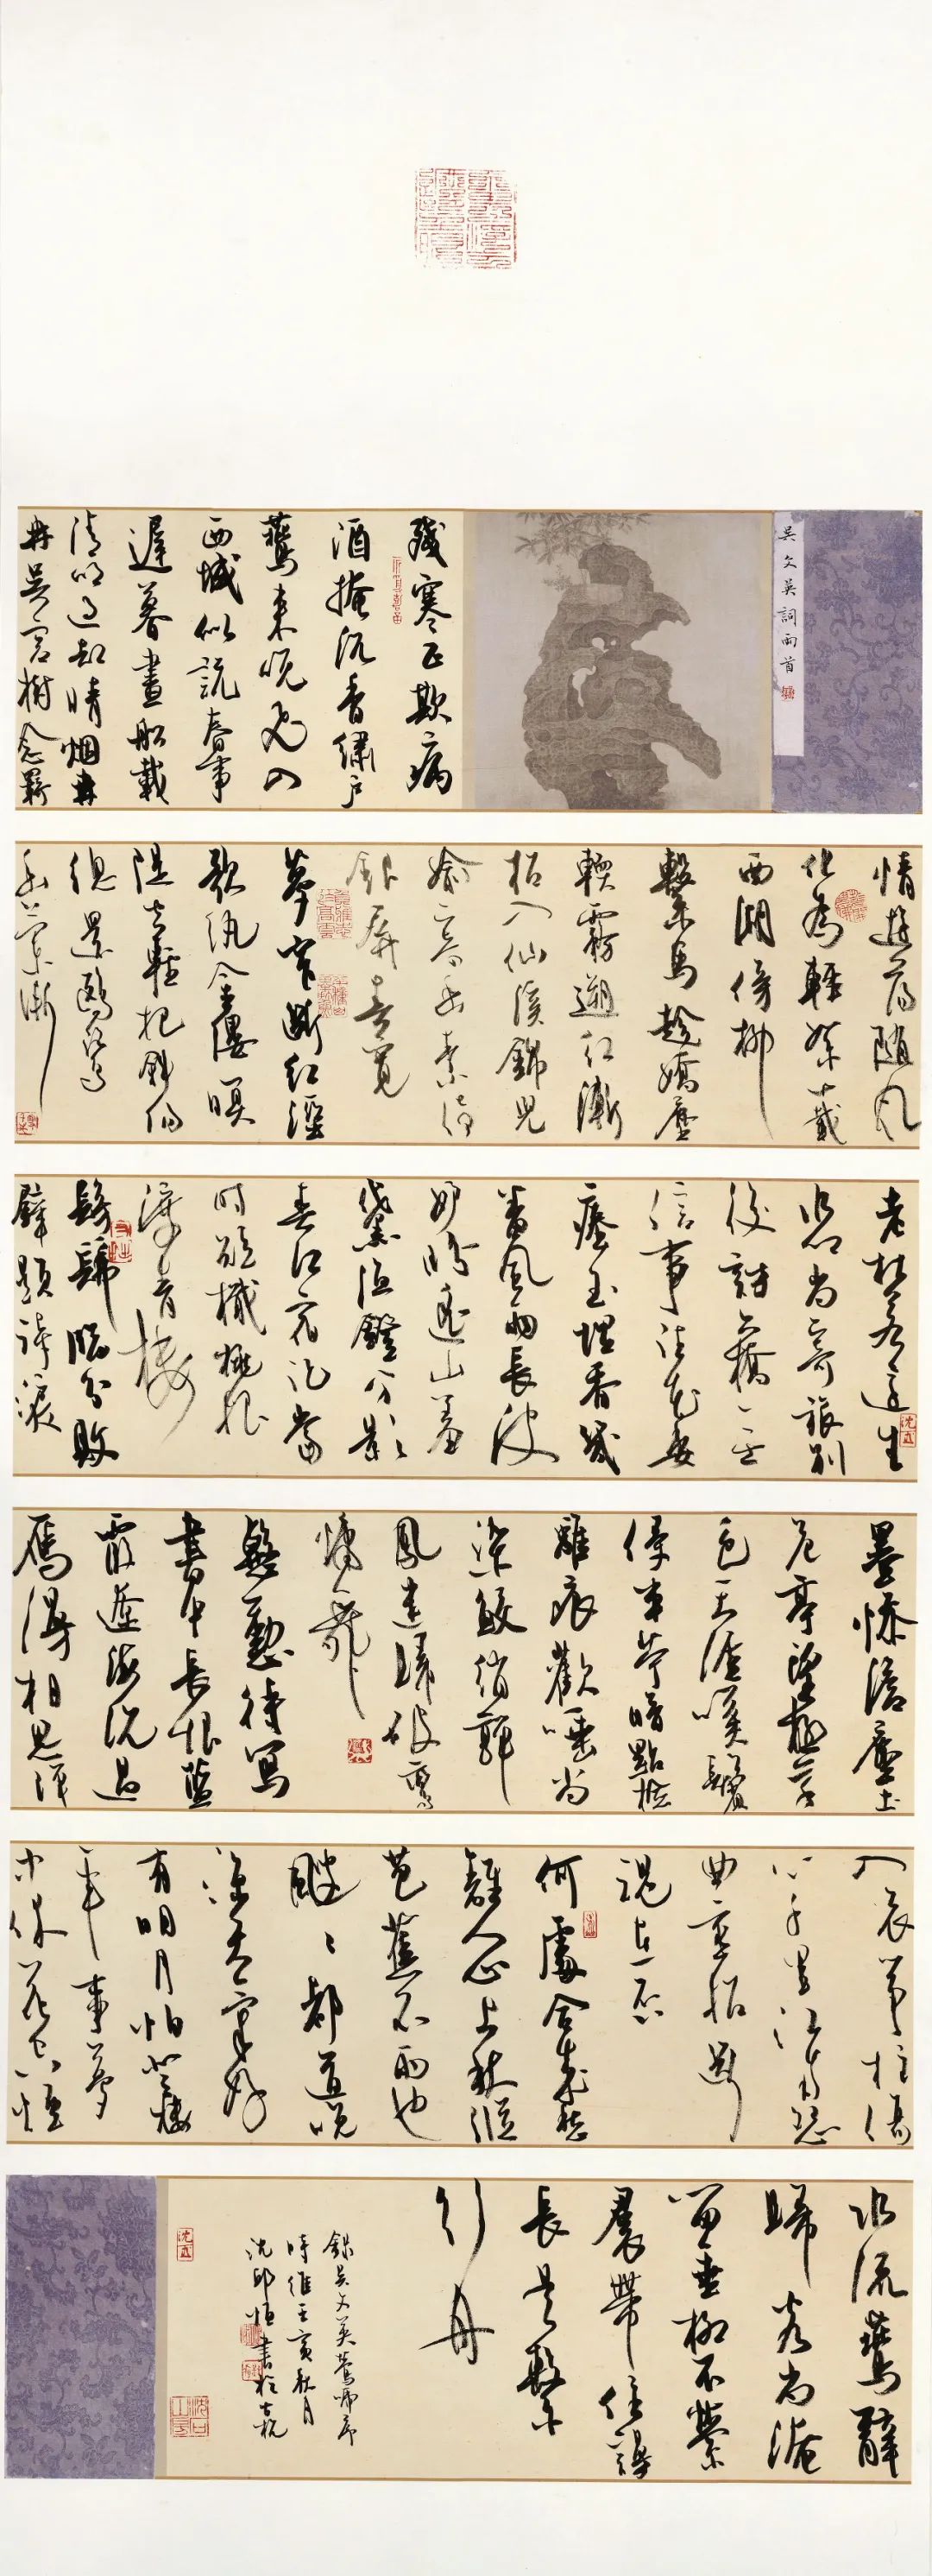 吳文英詞兩首
殘寒正欺病
酒掩沉香繡戶
燕來晚飛入
西城似說春事
遲暮畫船載
清明過卻晴烟冉
冉吳宮樹念羈
情遊蕩隨風
化為輕絮十載
西湖傍柳
繫馬趁嬌塵
軟霧遡紅漸
招入仙溪錦兒
偷寄幽素倚
銀屏春寬
夢窄斷紅溼
歌紈金縷暝
隄空輕把斜陽
總還鷗鷺
幽蘭漸
老杜若還生
水鄉尚寄旅別
後訪六橋無
信事往花委
瘞玉埋香幾
番風雨長波
妒盼遙山羞
黛漁燈分影
春江宿記當
時短檝桃根
渡青樓
髣髴臨分敗
壁題詩淚
墨慘澹塵土
危亭望極草
色天涯嘆鬢
侵半苧暗點檢
離痕歡唾尚
染鮫綃嚲
鳳迷歸破鸞
慵舞
殷勤待寫
書中長恨藍
霞遼海沉過
雁漫相思彈
入哀箏柱傷
心千里江南怨
曲重招斷
魂在否
何處合成愁
離人心上秋縱
芭蕉不雨也
颼颼都道晚
涼天氣好
有明月怕登樓
年事夢
中休花空煙
水流燕辭
歸客尚淹
留垂柳不縈
裙帶住謾
長是繫
行舟
錄吳文英鶯啼序
時維壬寅秋月
沈邱恆書於古杭